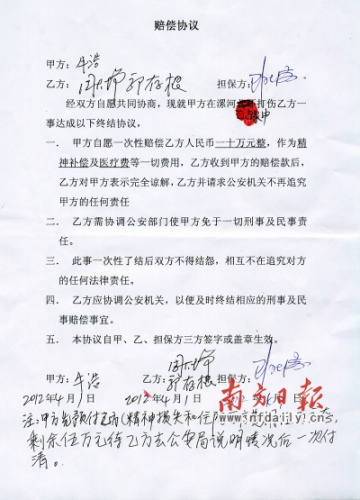 赔偿协议
甲方：牛浩
乙方： 郭存根 担保方：
经双方自愿共同协商，现就甲方在漯河 打伤乙方一
事达成以下终结协议。
一． 甲方自愿一次性赔偿乙方人民币一十万元整，作为精
神补偿及医疗费等一切费用，乙方收到甲方的赔偿款后，
乙方对甲方表示完全谅解，乙方并请求公安机关不再追究
甲方的任何责任
二． 乙方需协调公安部门使甲方免于一切刑事及民事责
任。
三． 此事一次性了结后双方不得结怨，相互不在追究对方
的任何法律责任。
四． 乙方应协调公安机关，以便及时终结相应的刑事及民
事赔偿事宜。
五． 本协议自甲、乙、担保方三方签字或盖章生效。
甲方：牛浩 乙方： 郭存根 担保方：
2012年4月1日 2012年4月1日
南方日报
注：甲方先预付乙方（精神损失和住
剩余伍万元待乙方去公安局说明情况后一次付
清。